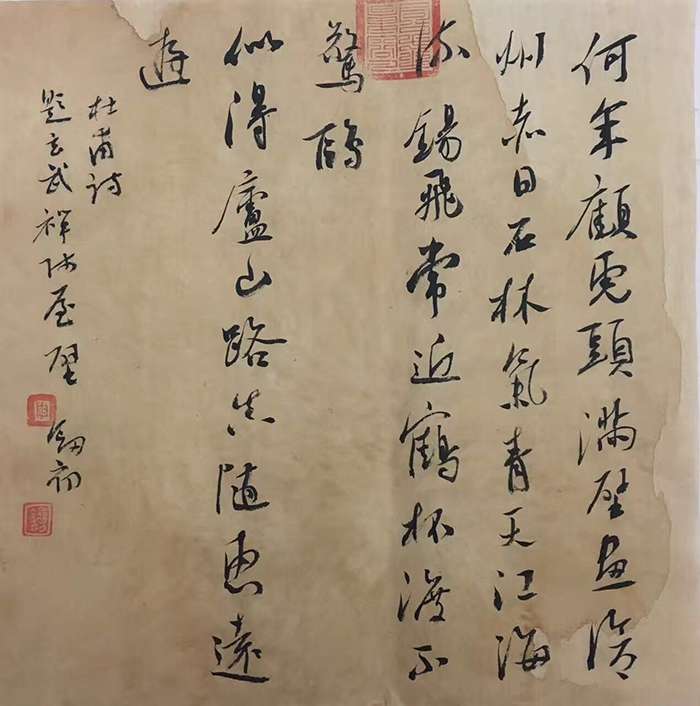 何年顧虎頭滿壁画滄
州赤日石林氣青天江海
流錫飛常近鶴杯渡不
驚鷗
似得廬山路真随惠遠
遊
杜甫詩
題玄武禪師屋壁 初